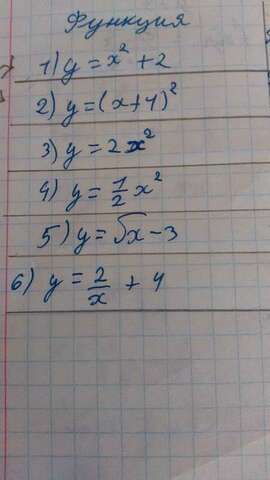 Функция
1) y = x² + 2
2) y = (x + 4)²
3) y = 2x²
4) y = 1/2 x²
5) y = √x - 3
6) y = 2/x + 4